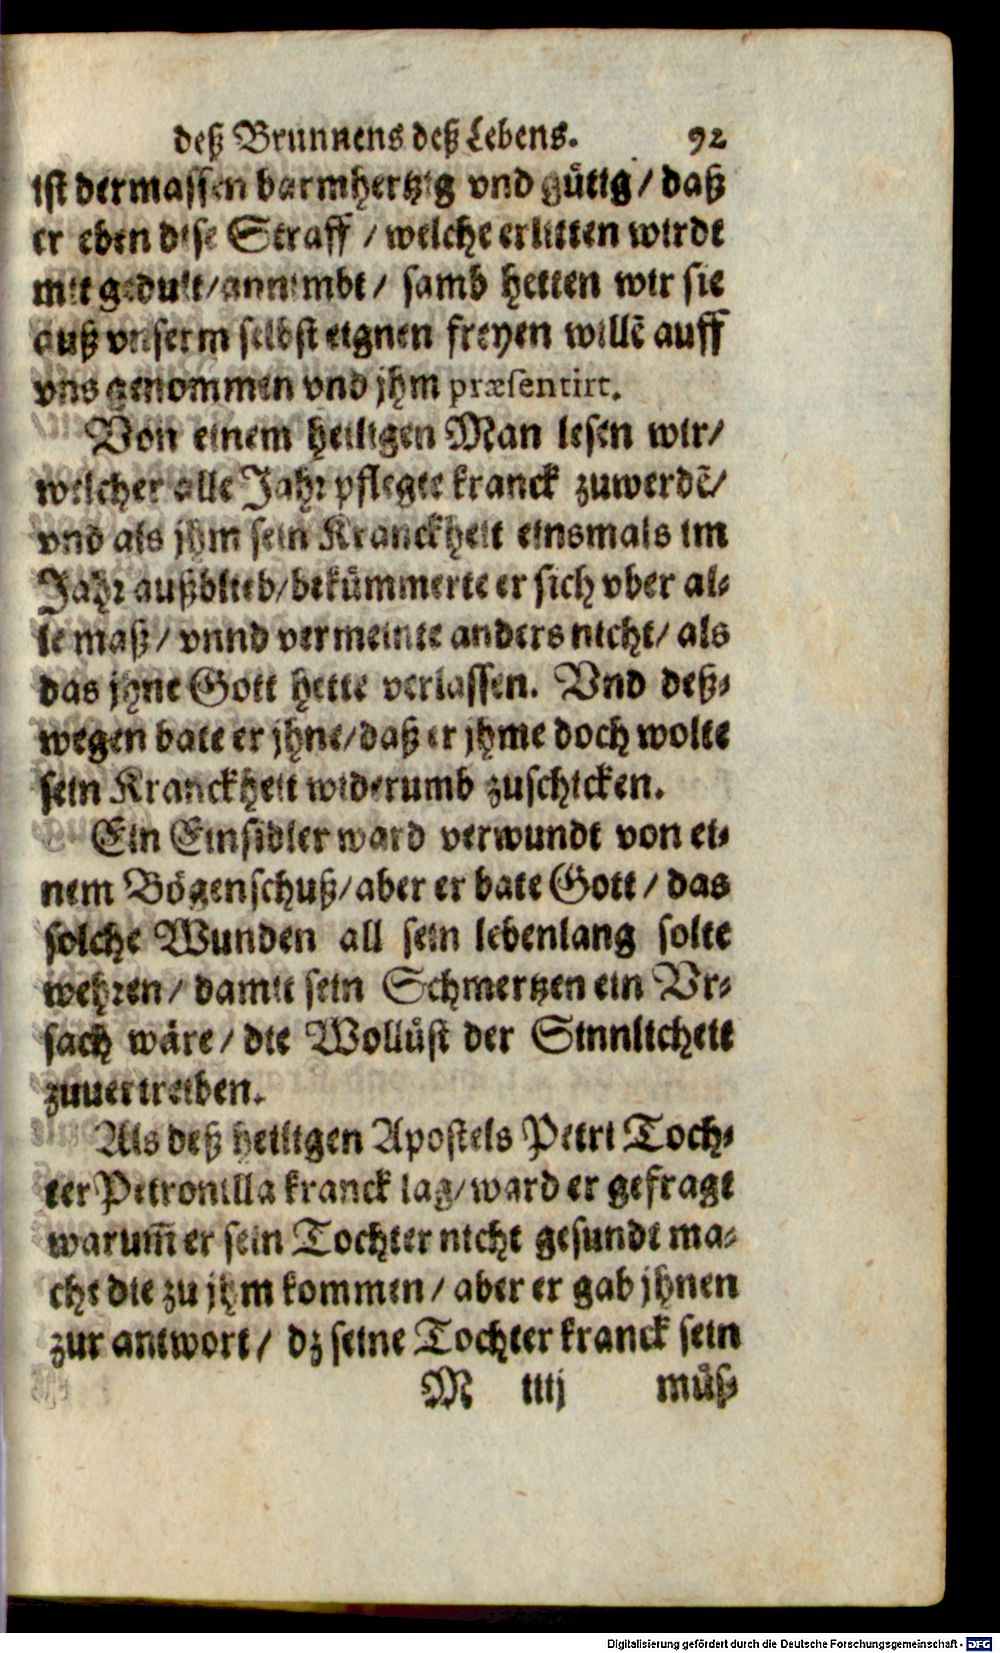 deß Brunnens deß Lebens. 92
ist dermassen barmhertzig vnd gütig/ daß
er eben dise Straff / welche erlitten wirdt
mit gedult/annimbt/ samb hetten wir sie
auß vnserm selbst eignen freyen willē auff
vns genommen vnd jhm præsentirt.
Von einem heiligen Man lesen wir/
welcher alle Jahr pflegte kranck zuwerdē/
vnd als jhm sein Kranckheit einsmals im
Jahr außblieb/bekümmerte er sich vber al-
le maß/ vnnd vermeinte anders nicht/ als
das jhne Gott hette verlassen. Vnd deß-
wegen bate er jhne/daß er jhme doch wolte
sein Kranckheit widerumb zuschicken.
Ein Einsidler ward verwundt von ei-
nem Bögenschuß/aber er bate Gott/ das
solche Wunden all sein lebenlang solte
wehren/ damit sein Schmertzen ein Vr-
sach wäre/ die Wollüst der Sinnlicheit
zuuertreiben.
Als deß heiligen Apostels Petri Toch-
ter Petronilla kranck lag/ward er gefragt
warum̄ er sein Tochter nicht gesundt ma-
che die zu jhm kommen/ aber er gab jhnen
zur antwort/ dz seine Tochter kranck sein
M iiij müß-
Digitalisierung gefördert durch die Deutsche Forschungsgemeinschaft - DFG